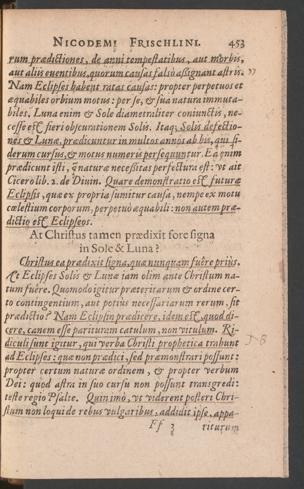 NICODEMI FRISCHLINI. 453
rum prædictiones, de anni tempestatibus, aut morbis,
aut aliis eventibus, quorum causas falsò assignant astris. ”
Nam Eclipses habent ratas causas: propter perpetuos et
æquabiles orbium motus: per se, & sua natura immuta-
biles, Luna enim & Sole diametraliter coniunctis, ne-
cesse est fieri obscurationem Solis. Itaq; Solis defectio-
nes & Lunæ, prædicuntur in multos annos ab his, qui si-
derum cursus, & motus numeris persequuntur. Ea enim
prædicunt isti, quæ naturæ necessitas perfectura est: vt ait
Cicero lib. 2. de Diuin. Quare demonstratio est futuræ
Eclipsis, quæ ex propria sumitur causa, nempe ex motu
cælestium corporum, perpetuò æquabili: non autem præ-
dictio est Eclipseos.
At Christus tamen prædixit fore signa
in Sole & Luna?
Christus ea prædixit signa, quæ nunquam fuêre prius.
At Eclipses Solis & Lunæ iam olim ante Christum na-
tum fuêre. Quomodo igitur præteritarum & ordine cer-
to contingentium, aut potius necessariarum rerum, sit
prædictio? Nam Eclipsin prædicere, idem est, quod di-
cere, canem esse parituram catulum, non vitulum. Ri-
diculi sunt igitur, qui verba Christi prophetica trahunt
ad Eclipses: quæ non prædici, sed præmonstrari possunt:
propter certum naturæ ordinem, & propter verbum
Dei: quod astra in suo cursu non possunt transgredi:
teste regio Psalte. Quin imò, vt viderent posteri Chri-
stum non loqui de rebus vulgaribus, addidit ipse, appa-
Ff 3 riturum